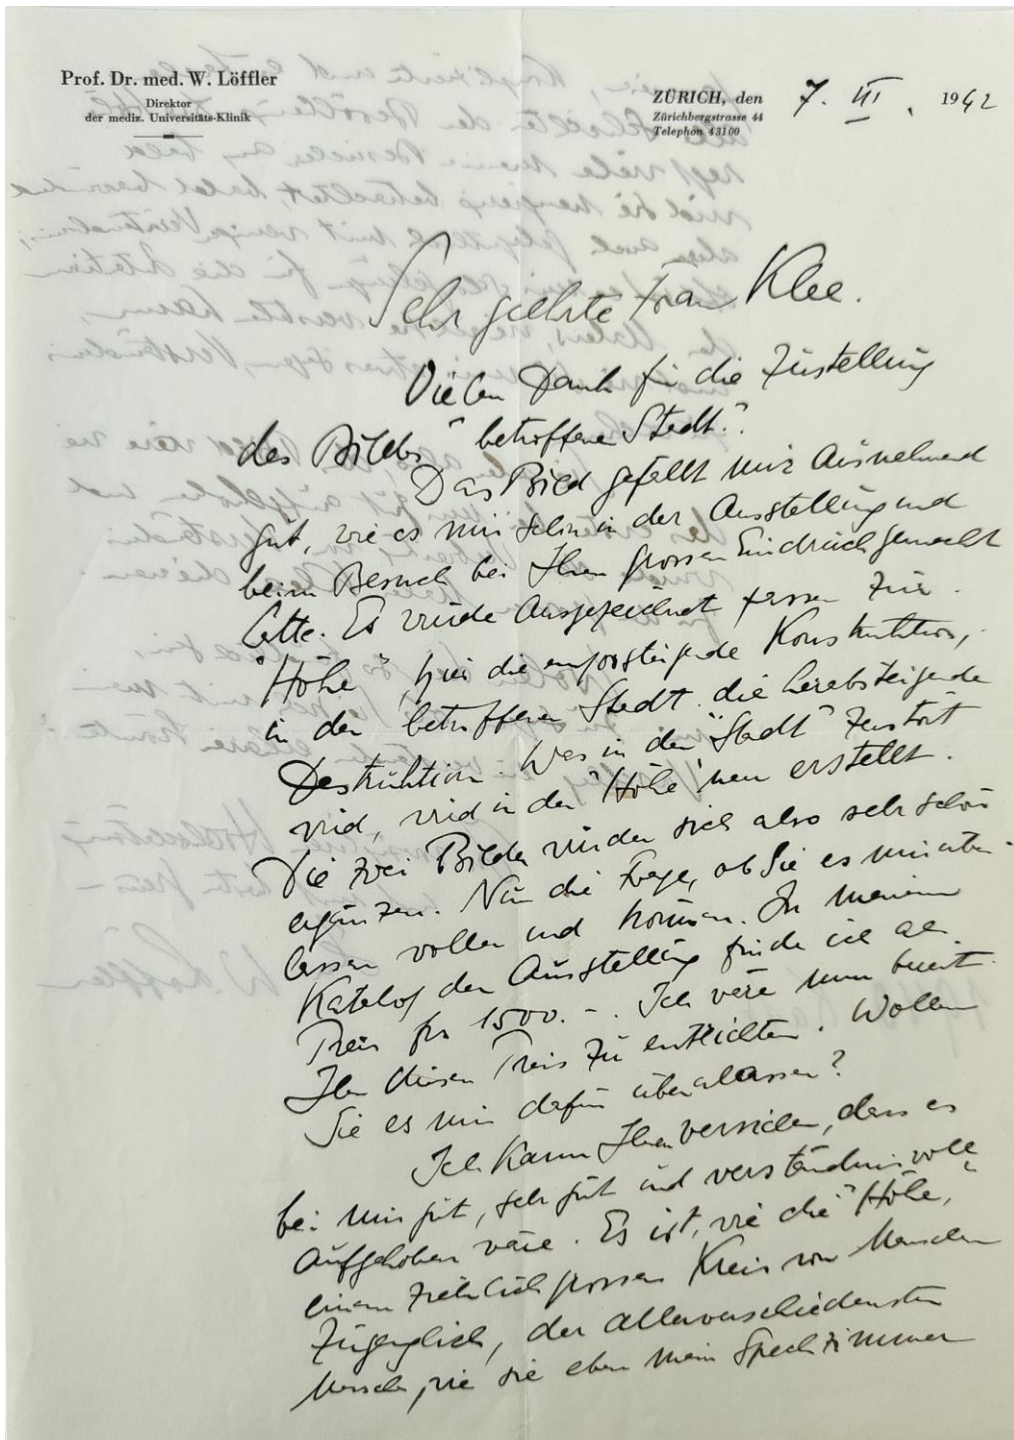 Prof. Dr. med. W. Löffler
Direktor
der mediz. Universitäts-Klinik
ZÜRICH, den 7. III. 1942
Zürichbergstrasse 44
Telephon 43100
Sehr geehrte Frau Klee.
Vielen Dank für die Zustellung
des Bildes "betroffene Stadt".
Das Bild gefällt mir Ausnehmend
gut, wie es mir schon in der Ausstellung und
beim Besuch bei Ihnen grossen Eindruck gemacht
hatte. Es würde Ausgezeichnet passen zur
"Höhe", hier die emporsteigende Konstruktion,
in der betroffenen Stadt die herabsteigende
Destruktion. Was in der "Stadt" zerstört
wird, wird in der "Höhe" neu erstellt.
Die zwei Bilder würden sich also sehr schön
ergänzen. Nun die Frage, ob Sie es mir über-
lassen wollen und können. In meinem
Katalog der Ausstellung finde ich als
Preis frs 1500.-. Ich wäre nun bereit
Ihnen diesen Preis zu entrichten. Wollen
Sie es mir dafür überlassen?
Ich kann Ihnen versichern, dass es
bei mir gut, sehr gut und verständnisvoll
Aufgehoben wäre. Es ist, wie die "Höhe",
einem ziemlich grossen Kreis von Menschen
Zugänglich, der allerverschiedensten
Menschen, wie sie eben mein Sprechzimmer